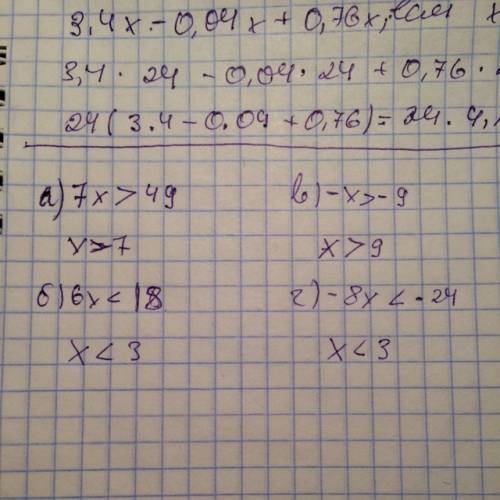 3,4x - 0,04x + 0,76x, если
3,4 · 24 - 0,04 · 24 + 0,76 ·
24(3.4 - 0.04 + 0,76) = 24 · 4,
а) 7x > 49
x > 7
б) 6x < 18
x < 3
в) -x > -9
x > 9
г) -8x < -24
x < 3